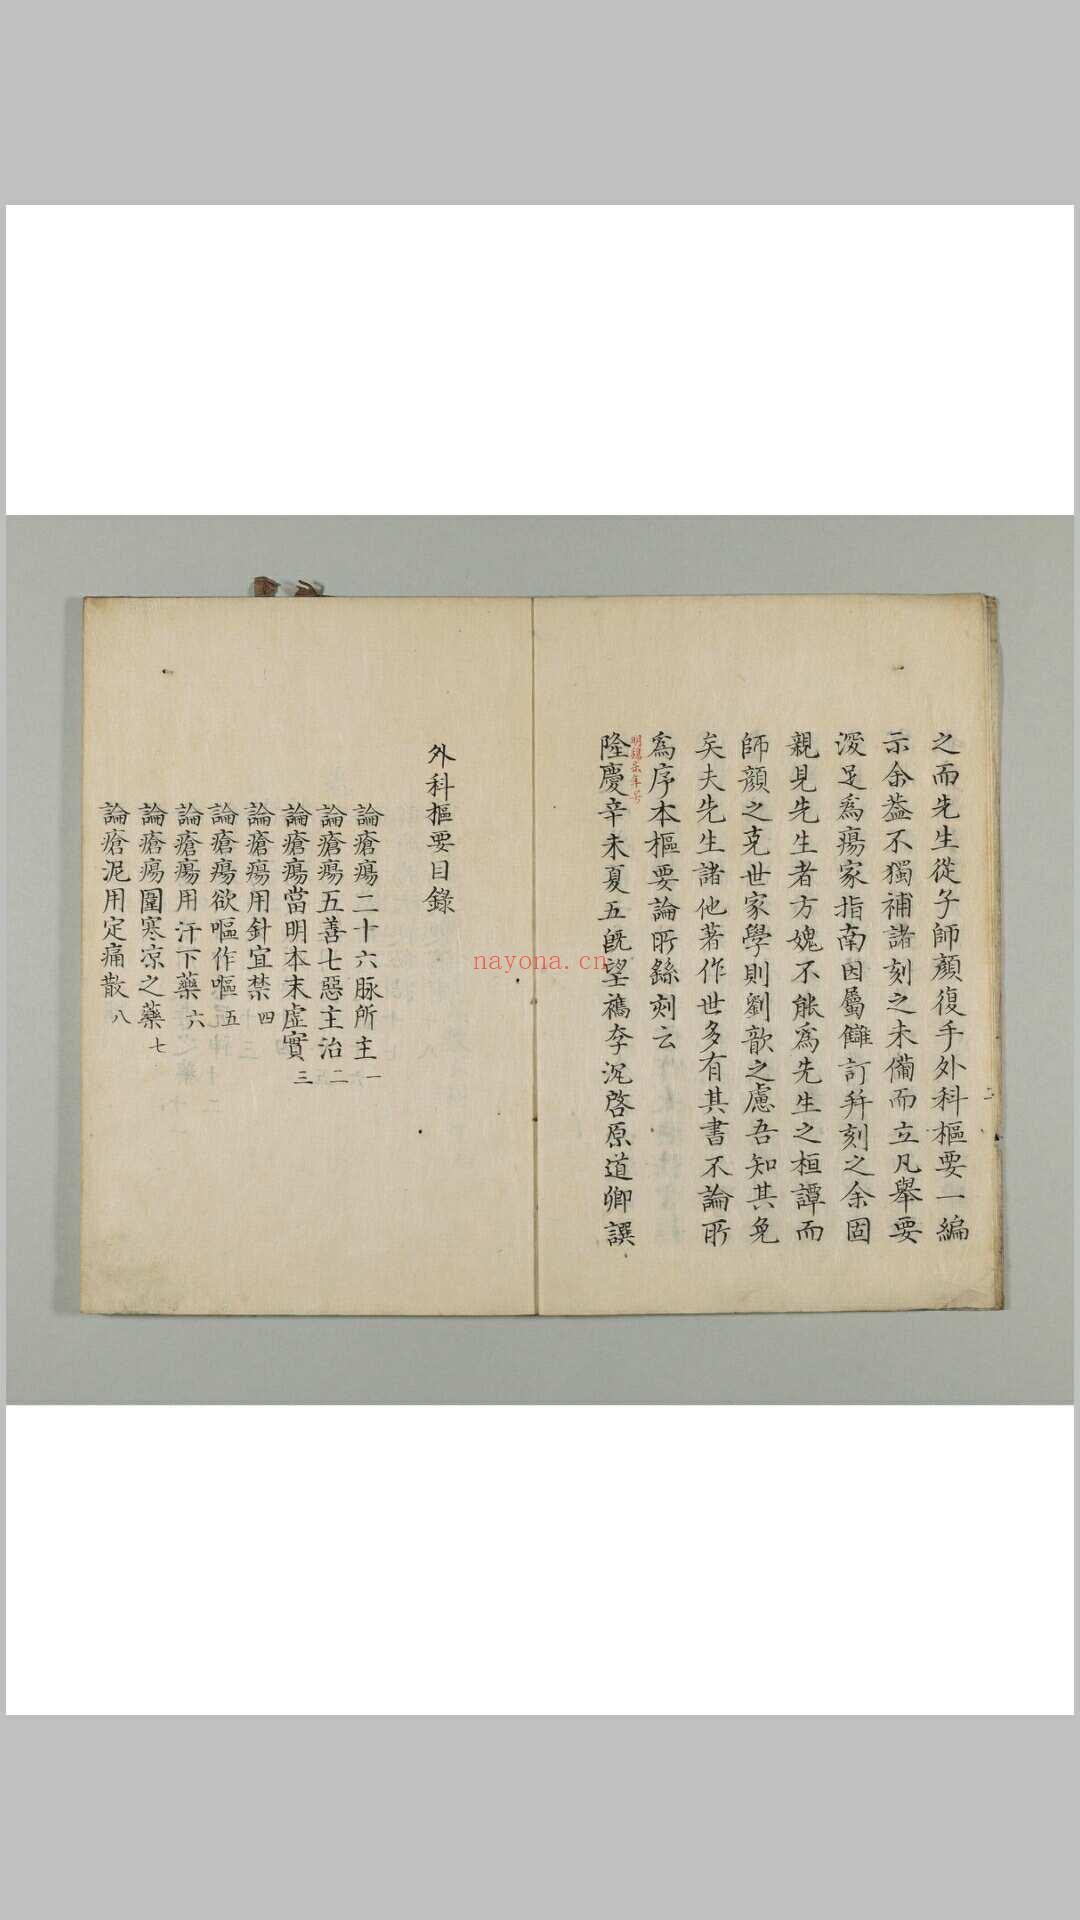 之而先生從子師顏復手外科樞要一編
示余葢不獨補諸刻之未備而立凡舉要
深足爲瘍家指南因屬讎訂并刻之余固
親見先生者方媿不能爲先生之桓譚而
師顏之克世家學則劉歆之慮吾知其免
矣夫先生諸他著作世多有其書不論所
爲序本樞要論所繇刻云
隆慶辛未夏五旣望檇李沉啓原道卿譔
明穆宗年号
二
外科樞要目錄
論瘡瘍二十六脉所主 一
論瘡瘍五善七惡主治 二
論瘡瘍當明本末虛實 三
論瘡瘍用針宜禁 四
論瘡瘍欲嘔作嘔 五
論瘡瘍用汗下藥 六
論瘡瘍圍寒凉之藥 七
論瘡泥用定痛散 八
nayona.cn